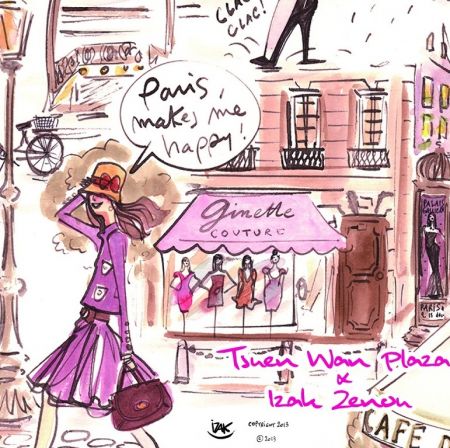 CLAC!
CLAC!
Paris,
makes me
happy!
Ginette
COUTURE
PALAIS
PARIS
Tsuen Wan Plaza
x
Izak Zenou
IZAK
COPYRIGHT 2013
© 2013
CAFE D